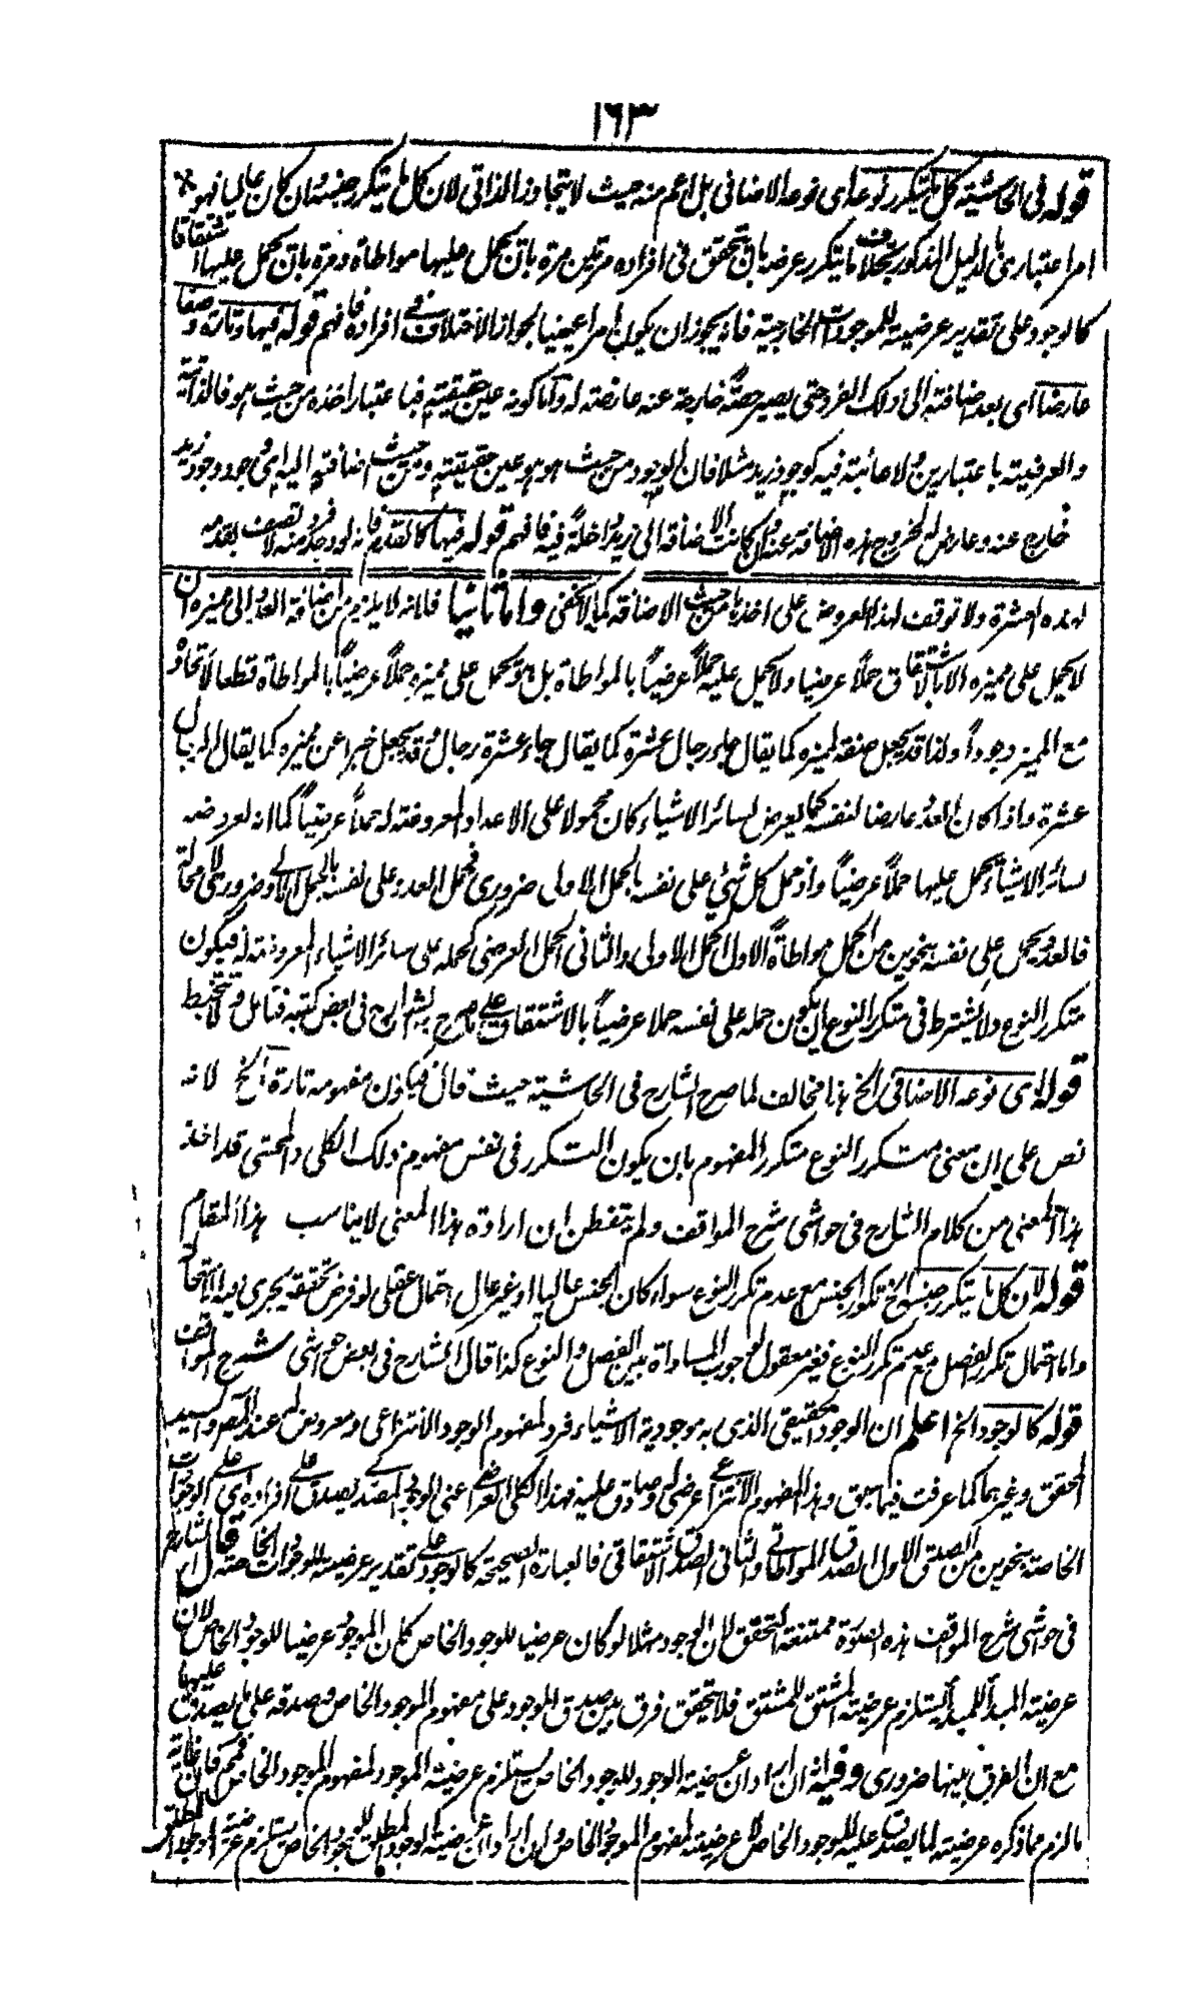 ١٦٣
قوله في الحاشية كل ما يتكرر نوعه اى نوعه الاضافى بل اعم منه حيث لا يتجاوز الذاتى لان كل ما يتكرر جنسه وان كان عاليا فهو
امر اعتبارى بالدليل المذكور بخلاف ما يتكرر عرضه بان يتحقق فى افراده مرتين مرة بان يحمل عليها مواطاة ومرة بان يحمل عليها اشتقاقا
كالوجود على تقدير عرضيته للموجودات الخارجية فانه يجوز ان يكون امرا عينيا لجواز الاختلاف فى افراده فافهم قوله فيها وتارة وصفا
عارضا اى بعد اضافته الى ذلك الفرد حتى يصير حصة خارجة عنه عارضة له واما كونه عين حقيقته فباعتبار اخذه من حيث هو فالذاتية
والعرضية باعتبارين ولا عائبة فيه كوجود زيد مثلا فان الوجود من حيث هو هو عين حقيقته ومن حيث اضافته اليه اى وجود وجود زيد
خارج عنه وعارض له لخروج هذه الاضافة عنه وان كانت الاضافة الى زيد داخلة فيه فافهم قوله فيها كالقدم فانه لو وجد فرد منه لاتصف بقدمه
لهذه العشرة ولا توقف لهذا العروض على اخذها من حيث الاضافة كما لا يخفى واما ثانيا فلانه لا يلزم من اضافة العدد الى مميزه ان
لا يحمل على مميزه الا بالاشتقاق حملاً عرضيا ولا يحمل عليه حملاً عرضياً بالمواطاة بل هو يحمل على مميزه حملاً عرضياً بالمواطاة قطعا لاتحاده
مع المميز وجوداً ولذا قد يجعل صفة لمميزه كما يقال جاء رجال عشرة كما يقال جاء عشرة رجال وقد يجعل خبرا عن مميزه كما يقال الرجال
عشرة واذا كان العدد عارضا لنفسه كما يعرض لسائر الاشياء كان محمولا على الاعداد المعروضة له حملاً عرضياً كما انه لعروضه
لسائر الاشياء يحمل عليها حملاً عرضياً واذ حمل كل شئ على نفسه بالحمل الاولى ضرورى فحمل العدد على نفسه بالحمل الاولى ضرورى لا محالة
فالعدد يحمل على نفسه بنحوين من الحمل مواطاة الاول الحمل الاولى والثانى الحمل العرضى كحمله على سائر الاشياء المعروضة له فيكون
متكرر النوع ولا يشترط فى متكرر النوع ان يكون حمله على نفسه حملا عرضياً بالاشتقاق على ما صرح به الشارح فى بعض كتبه فتامل ولا تتخبط
قوله اى نوعه الاضافى الخ هذا مخالف لما صرح الشارح فى الحاشية حيث قال فيكون مفهومه تارة الخ لانه
نص على ان معنى متكرر النوع متكرر المفهوم بان يكون التكرر فى نفس مفهوم ذلك الكلى والمحشى قد اخذ
هذا المعنى من كلام الشارح فى حواشى شرح المواقف ولم يتفطن ان ارادة هذا المعنى لا يناسب هذا المقام
قوله لان كل ما يتكرر جنسه الخ تكرر الجنس مع عدم تكرر النوع سواء كان الجنس عاليا او غير عال احتمال عقلى لو فرض تحققه يجرى فيه الاستحالة
واما احتمال تكرر الفصل مع عدم تكرر النوع فغير معقول لوجوب المساواة بين الفصل والنوع كذا قال الشارح فى بعض حواشى شرح المواقف
قوله كالوجود الخ اعلم ان الوجود الحقيقى الذى به موجودية الاشياء فرد لمفهوم الوجود الانتزاعى ومعروض له عند الصدر والسيد
المحقق وغيرهما كما عرفت فيما سبق وهذا المفهوم الانتزاعى عرضى له وصادق عليه فهذا الكلى العرضى اعنى الوجود المصدرى يصدق على افراده اى على الوجودات
الخاصة بنحوين من الصدق الاول الصدق المواطاتى والثانى الصدق الاشتقاقى فالعبارة الصحيحة كالوجود على تقدير عرضيته للوجودات الخاصة قال الشارح
فى حواشى شرح المواقف هذه الصورة ممتنعة التحقق لان الوجود مثلا لو كان عرضيا للوجود الخاص لكان الموجود عرضيا للموجود الخاص لان
عرضية المبدأ للمبدأ يستلزم عرضية المشتق للمشتق فلا يتحقق فرق بين صدق الموجود على مفهوم الموجود الخاص وصدقه على ما يصدق عليها
مع ان الفرق بينها ضرورى وفيه ان ان اراد ان عرضية الوجود للوجود الخاص يستلزم عرضية الموجود لمفهوم الموجود الخاص فممنوع فان غاية
ما لزم مما ذكره عرضيته لما يصدق عليه للوجود الخاص لا عرضيته لمفهوم الموجود الخاص وان اراد ان عرضية الوجود المطلق للوجود الخاص يستلزم عرضية الموجود المطلق